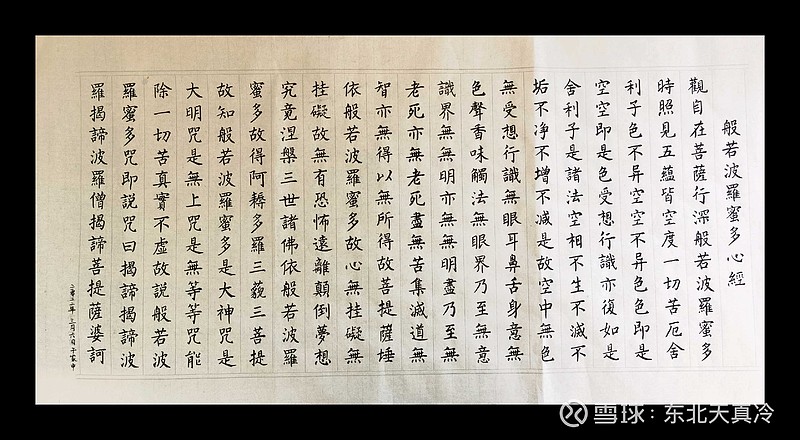 般若波羅蜜多心經
觀自在菩薩行深般若波羅蜜多
時照見五蘊皆空度一切苦厄舍
利子色不异空空不异色色即是
空空即是色受想行識亦復如是
舍利子是諸法空相不生不滅不
垢不净不增不减是故空中無色
無受想行識無眼耳鼻舌身意無
色聲香味觸法無眼界乃至無意
識界無無明亦無無明盡乃至無
老死亦無老死盡無苦集滅道無
智亦無得以無所得故菩提薩埵
依般若波羅蜜多故心無挂礙無
挂礙故無有恐怖遠離顛倒夢想
究竟涅槃三世諸佛依般若波羅
蜜多故得阿耨多羅三藐三菩提
故知般若波羅蜜多是大神咒是
大明咒是無上咒是無等等咒能
除一切苦真實不虛故説般若波
羅蜜多咒即説咒曰揭諦揭諦波
羅揭諦波羅僧揭諦菩提薩婆訶
年三月六日于家中
雪球：东北天真冷